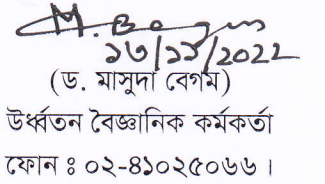 M. Begum
১৩/১১/2022
(ড. মাসুদা বেগম)
উর্ধ্বতন বৈজ্ঞানিক কর্মকর্তা
ফোন ঃ ০২-৪১০২৫০৬৬ ।